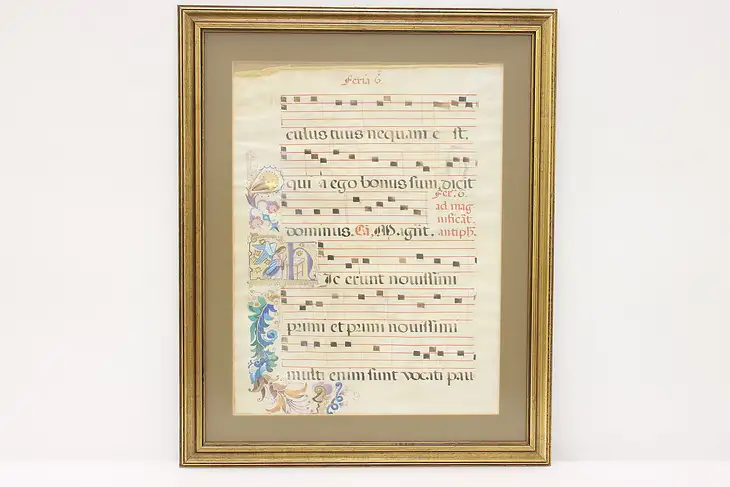 Feria 6.
culus tuus nequam e st,
qui a ego bonus sum, dicit
Fer. 6.
ad mag
nificāt.
dominus. Cā, Magñt. antiph.
Ic erunt nouissimi
primi et primi nouissimi
multi enim sunt vocati pau